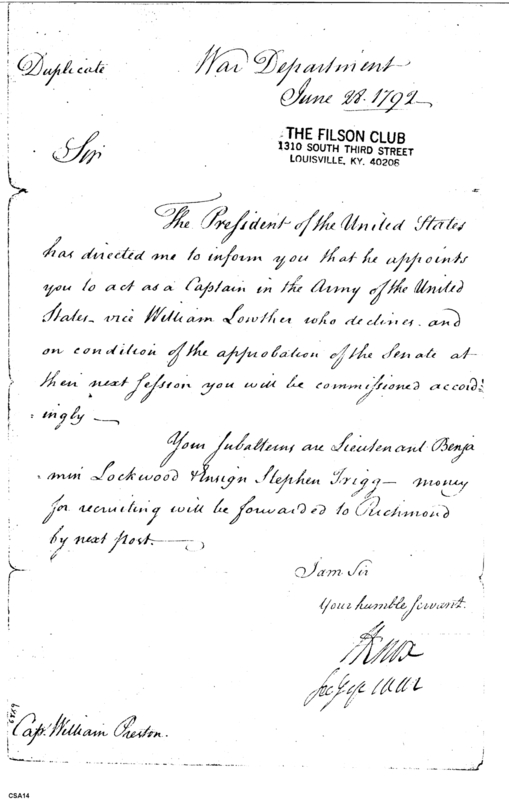 Duplicate
War Department
June 28. 1792
THE FILSON CLUB
1310 SOUTH THIRD STREET
LOUISVILLE, KY. 40206
Sir
The President of the United States
has directed me to inform you that he appoints
you to act as a Captain in the Army of the United
States - vice William Lowther who declines - and
on condition of the approbation of the Senate at
their next session you will be commissioned accord:
:ingly —
Your subalterns are Lieutenant Benja
min Lockwood & Ensign Stephen Trigg — money
for recruiting will be forwarded to Richmond
by next post. —
I am Sir
Your humble servant.
HKnox
Secy of War
Capt. William Preston.
CSA14